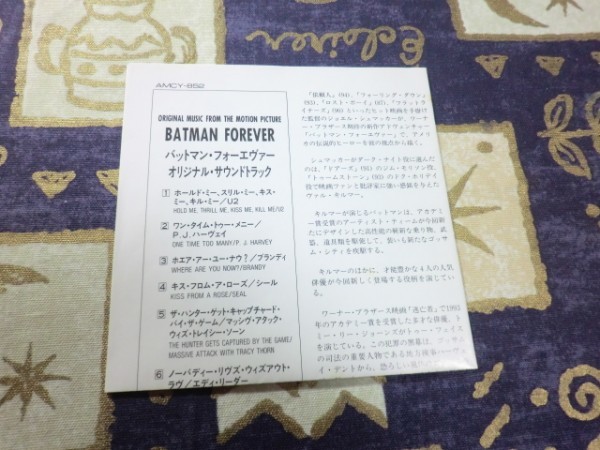 AMCY-852
ORIGINAL MUSIC FROM THE MOTION PICTURE
BATMAN FOREVER
バットマン・フォーエヴァー
オリジナル・サウンドトラック
1 ホールド・ミー、スリル・ミー、キス・
ミー、キル・ミー/U2
HOLD ME, THRILL ME, KISS ME, KILL ME/U2
2 ワン・タイム・トゥー・メニー/
P.J.ハーヴェイ
ONE TIME TOO MANY/P. J. HARVEY
3 ホエア・アー・ユー・ナウ?/ブランディ
WHERE ARE YOU NOW?/BRANDY
4 キス・フロム・ア・ローズ/シール
KISS FROM A ROSE/SEAL
5 ザ・ハンター・ゲット・キャプチャード・
バイ・ザ・ゲーム/マッシヴ・アタック・
ウィズ・トレイシー・ソーン
THE HUNTER GETS CAPTURED BY THE GAME/
MASSIVE ATTACK WITH TRACY THORN
6 ノーバディー・リヴズ・ウィズアウト・
ラヴ/エディ・リーダー
『依頼人』(94)、『フォーリング・ダウン』
(93)、『ロスト・ボーイ』(87)、『フラットラ
イナーズ』(90)といったヒット映画を手掛け
た監督のジョエル・シュマッカーが、ワーナ
ー・ブラザース映画の新作アドヴェンチャー
『バットマン・フォーエヴァー』で、アメコ
ミの伝説的ヒーローを彼の視点から描く。
シュマッカーがダーク・ナイト役に選んだ
のは、『ドアーズ』(91)のジム・モリソン役、
『トゥームストーン』(93)のドク・ホリデイ
役で映画ファンと批評家に強い感銘を与えた
ヴァル・キルマー。
キルマーが演じるバットマンは、アカデミ
ー賞受賞のアーティスト・ティームが今回新
たにデザインした高性能の斬新な乗り物、武
器、道具類を駆使して、装いも新たなゴッサ
ム・シティを疾駆する。
キルマーのほかに、才能豊かな4人の人気
俳優が今回新しく登場する役柄を演じてい
る。
ワーナー・ブラザース映画『逃亡者』で1993
年のアカデミー賞を受賞した多才な俳優、ト
ミー・リー・ジョーンズがトゥー・フェイス
を演じている。この犯罪の黒幕は、
の司法の重要人物である地方検事ハーヴェ
イ・デントから、恐ろしい